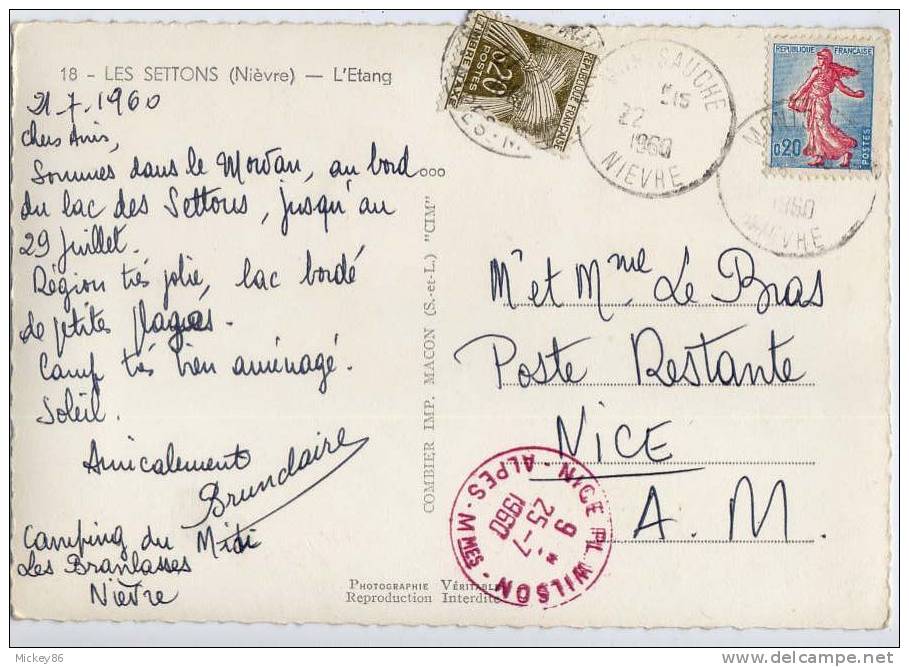 18 - LES SETTONS (Nièvre) — L'Etang
21.7.1960
Chers Amis,
Sommes dans le Morvan, au bord
du lac des Settons, jusqu'au
29 Juillet.
Région très jolie, lac bordé
de petites plages.
Camp très bien aménagé.
Soleil.
Amicalement
Brunclaire
Camping du Midi
Les Branlasses
Nièvre
COMBIER IMP. MACON (S.-et-L.) "CIM"
PHOTOGRAPHIE VÉRITABLE
Reproduction Interdite
0,20
POSTES
TIMBRE TAXE
REPUBLIQUE FRANÇAISE
SAUCHE
22
1960
NIEVRE
REPUBLIQUE FRANÇAISE
0,20
POSTES
1960
NIEVRE
Mr et Mme Le Bras
Poste Restante
NICE
A.M
NICE PL. WILSON
9 *
25-7
1960
ALPES-MMES
Mickey86